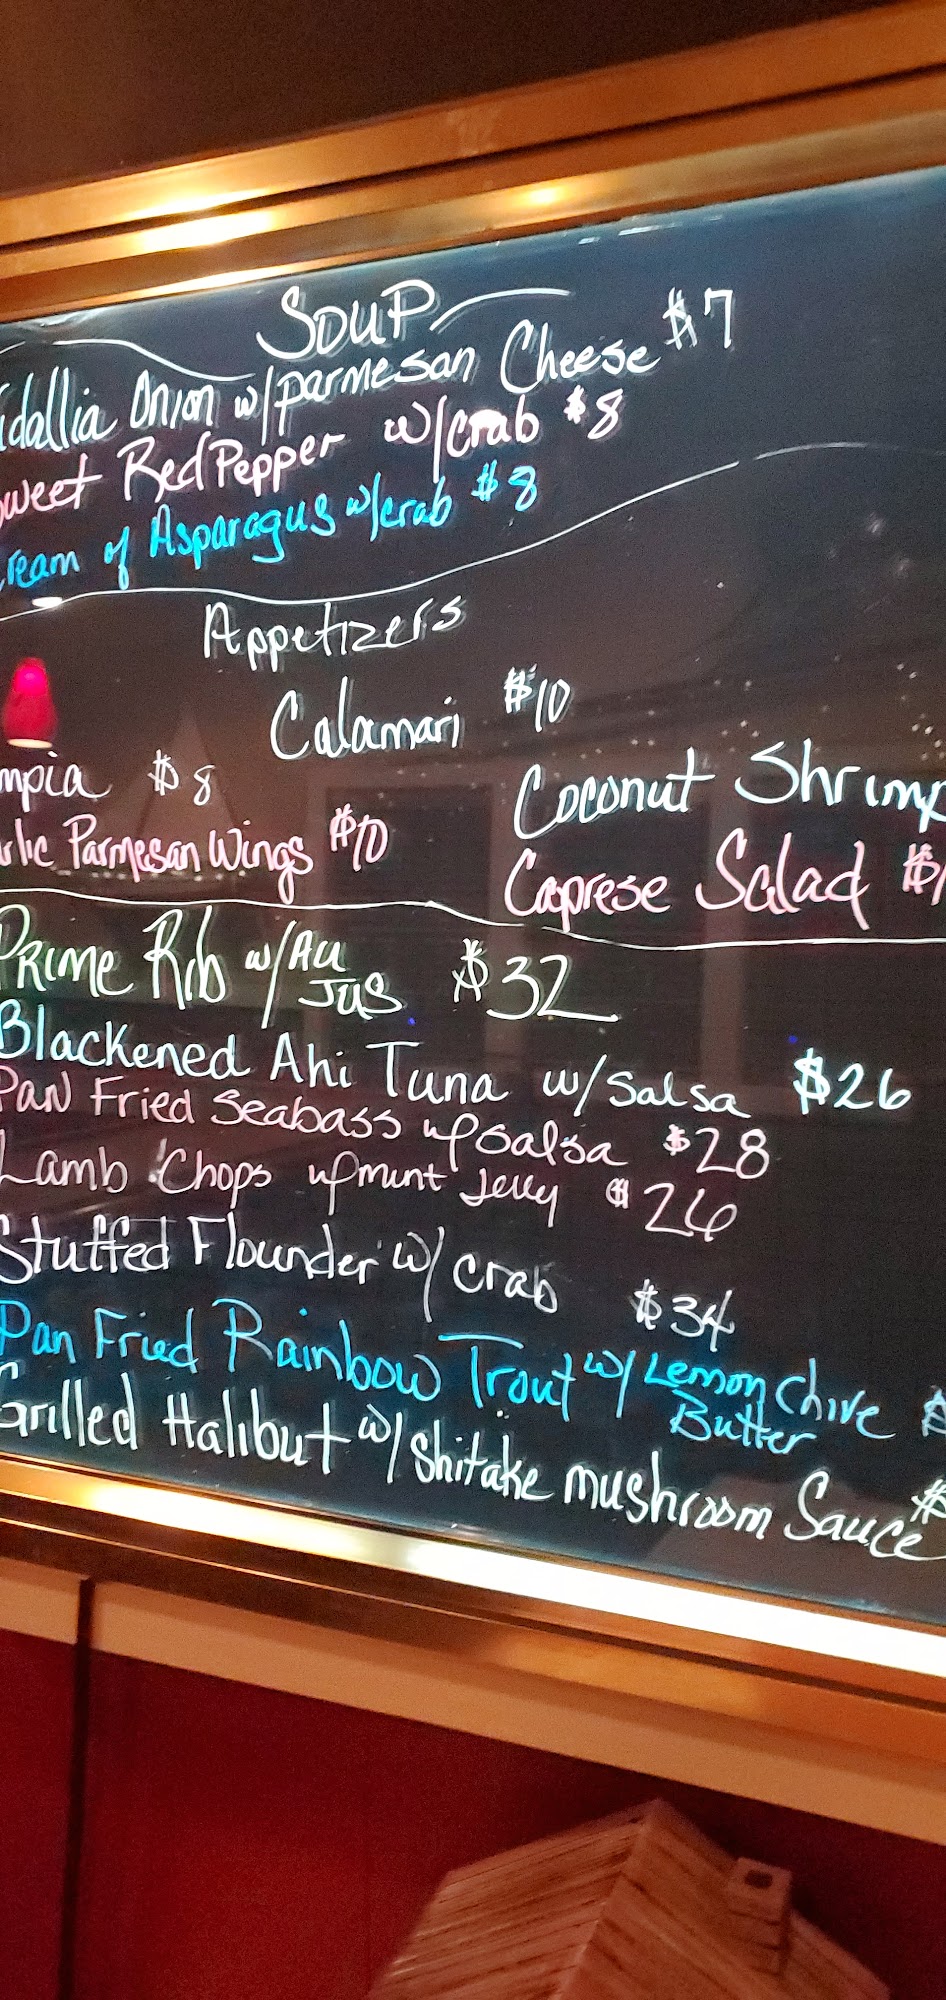 Soup
idallia Onion w/parmesan Cheese $7
weet Red Pepper w/crab $8
ream of Asparagus w/crab $8
Appetizers
Calamari $10
mpia $8
Coconut Shrimp
rlic Parmesan Wings $10
Caprese Salad $1
Prime Rib w/Au Jus $32
Blackened Ahi Tuna w/Salsa $26
Pan Fried Seabass w/salsa $28
Lamb Chops w/mint Jelly $26
Stuffed Flounder w/ crab $34
Pan Fried Rainbow Trout w/ Lemon Chive Butter $
Grilled Halibut w/shitake mushroom Sauce $